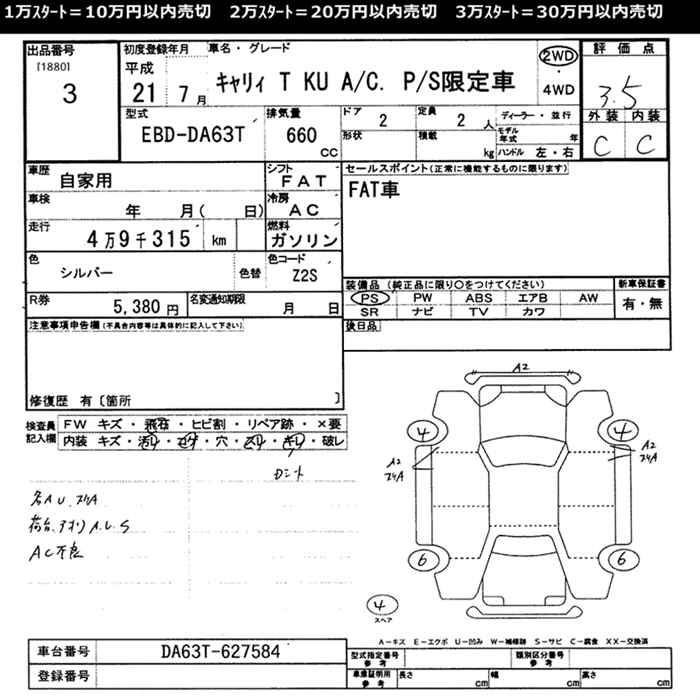 1万ｽﾀｰﾄ＝10万円以内売切　2万ｽﾀｰﾄ＝20万円以内売切　3万ｽﾀｰﾄ＝30万円以内売切
出品番号
[1880]
3
初度登録年月
平成
21年7月
車名・グレード
ｷｬﾘｨ T KU A/C. P/S限定車
2WD
4WD
評価点
3.5
外装 内装
C C
型式
EBD-DA63T
排気量
660
CC
ドア 2
形状
定員 2 人
積載 kg
ディーラー・並行
モデル年式 年
ハンドル 左・右
車歴
自家用
シフト
FAT
車検
年 月( 日)
冷房
AC
走行
4万9千315 km
燃料
ガソリン
色
シルバー
色替
色コード
Z2S
R券
5,380 円
名変通知期限
月 日
セールスポイント(正常に機能するものに限ります)
FAT車
装備品 (純正品に限り○をつけてください)
PS PW ABS エアB AW
SR ナビ TV カワ
新車保証書
有・無
後日品
注意事項申告欄(不具合内容等は具体的に記入して下さい)
修復歴 有〔箇所 〕
検査員記入欄
FW キズ・飛石・ヒビ割・リペア跡・×要
内装 キズ・汚レ・コゲ・穴・スレ・キレ・破レ
AC不良
A2
4 4
A2
A2
6 6
4
スペア
A－キズ E－エクボ U－凹み W－補修跡 S－サビ C－腐食 XX－交換済
車台番号
DA63T-627584
登録番号
型式指定番号
参考
類別区分番号
参考
車庫証明用
参考
長さ cm
幅 cm
高さ cm